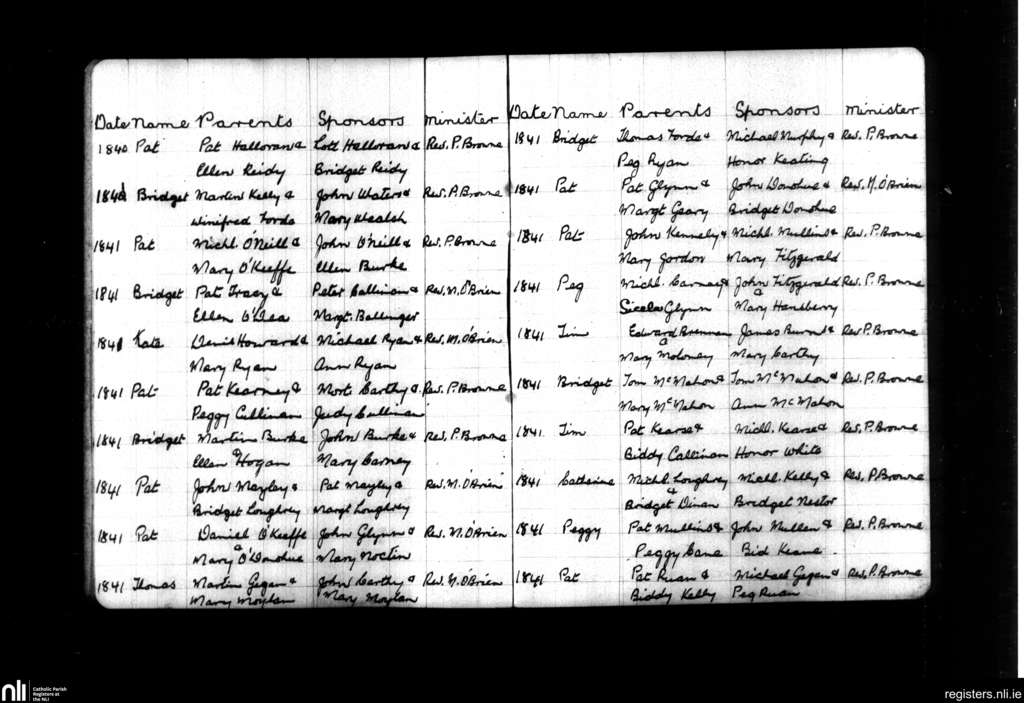 Date Name Parents Sponsors Minister
1840 Pat Pat Halloran & Lott Halloran & Rev. P. Browne
Ellen Reidy Bridget Reidy
1840 Bridget Martin Kelly & John Waters & Rev. P. Browne
Winifred Forde Mary Walsh
1841 Pat Michl. O'Neill & John O'Neill & Rev. P. Browne
Mary O'Keeffe Ellen Burke
1841 Bridget Pat Tracy & Peter Callinan & Rev. M. O'Brien
Ellen O'Dea Margt. Ballinger
1841 Kate Denis Howard & Michael Ryan & Rev. M. O'Brien
Mary Ryan Ann Ryan
1841 Pat Pat Kearney & Mort Carthy & Rev. P. Browne
Peggy Cullinan Judy Cullinan
1841 Bridget Martin Burke John Burke & Rev. P. Browne
Ellen & Hogan Mary Carney
1841 Pat John Mayley & Pat Mayley & Rev. M. O'Brien
Bridget Loughrey Margt Loughrey
1841 Pat Daniel O'Keeffe John Glynn & Rev. M. O'Brien
Mary & O'Donohue Mary Noctin
1841 Thomas Martin Gegan & John Carthy & Rev. M. O'Brien
Mary Moylan Mary Moylan
Date Name Parents Sponsors Minister
1841 Bridget Thomas Forde & Michael Murphy & Rev. P. Browne
Peg Ryan Honor Keating
1841 Pat Pat Glynn & John Donohue & Rev. M. O'Brien
Margt Geary Bridget Donohue
1841 Pat John Kennely & Michl. Mullins & Rev. P. Browne
Mary Gordon Mary Fitzgerald
1841 Peg Michl. Carney & John Fitzgerald Rev. P. Browne
Glynn & Mary Hansberry
1841 Tim Edward Brennan James Burns & Rev P. Browne
Mary & Moloney Mary Carthy
1841 Bridget Tom McMahon & Tom McMahon & Rev. P. Browne
Mary McMahon Ann McMahon
1841 Tim Pat Kearse & Michl. Kearse & Rev. P. Browne
Biddy Callinan Honor White
1841 Catherine Michl. Loughrey Michl. Kelly & Rev. P. Browne
& Bridget Dinan Bridget Nestor
1841 Peggy Pat Mullins & John Mullen & Rev. P. Browne
Peggy Cane Bid Keane
1841 Pat Pat Ruan & Michael Gegan & Rev. P. Browne
Biddy Kelly Peg Ruan
nli Catholic Parish
Registers at
the NLI
registers.nli.ie